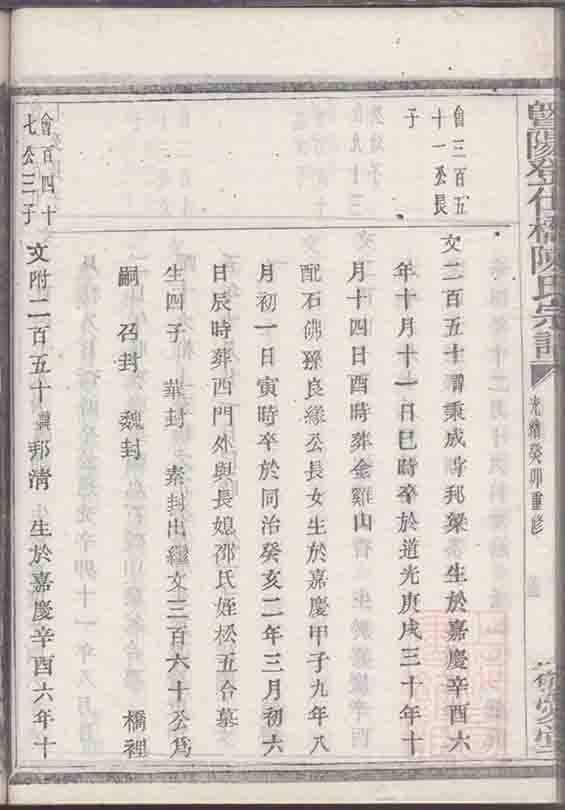 暨陽登仕橋陳氏宗譜
光緒癸卯重修
會三百五
十一公長
子
文二百五十諱秉成字邦樑生於嘉慶辛酉六
年十月十一日巳時卒於道光庚戌三十年十
月十四日酉時葬金雞山
配石佛孫良緣公長女生於嘉慶甲子九年八
月初一日寅時卒於同治癸亥二年三月初六
日辰時葬西門外與長媳邵氏姪松五合墓
生四子 華封 素封出繼文三百六十公爲
嗣 召封 魏封 橋裡
會百四十
七公三子
文附二百五十諱邦淸 生於嘉慶辛酉六年十